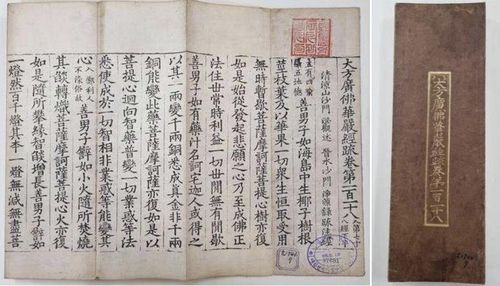 大方廣佛華嚴經疏卷第一百一十八
清涼山沙門 澄觀述 晉水沙門 淨源錄疏注經
善男子如海島中生椰子樹根
莖枝葉及以華果一切衆生恒取受用
無時暫歇菩薩摩訶薩菩提心樹亦復
如是始從發起悲願之心乃至成佛正
法住世常時利益一切世間無有間歇
善男子如有藥汁名訶宅迦人或得之
以其一兩變千兩銅悉成真金非千兩
銅能變此藥菩薩摩訶薩亦復如是以
菩提心迴向智藥普變一切業惑等法
悉使成於一切智相非業惑等能變其
心 善男子譬如小火隨所焚燒
其燄轉熾菩薩摩訶薩菩提心火亦復
如是隨所攀緣智燄增長善男子譬如
一燈然百千燈其本一燈無減無盡菩
大方廣佛華嚴經疏卷第一百一十八